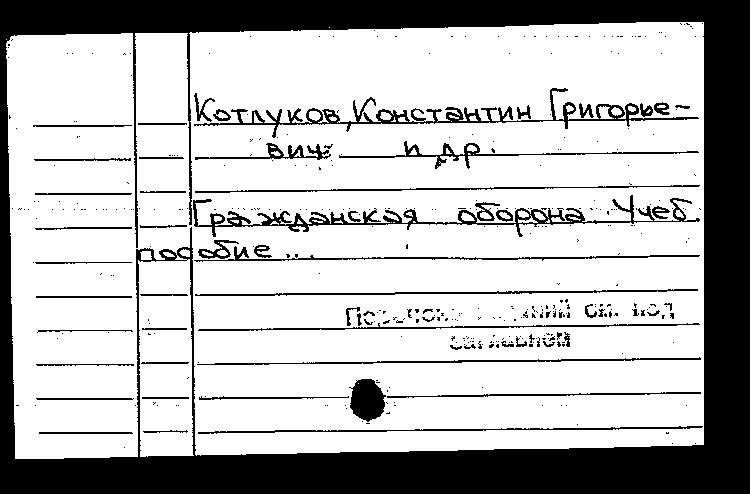 Котлуков, Константин Григорье-
вич и др.
Гражданская оборона. Учеб.
пособие...
Перечень изданий см. под
заглавием